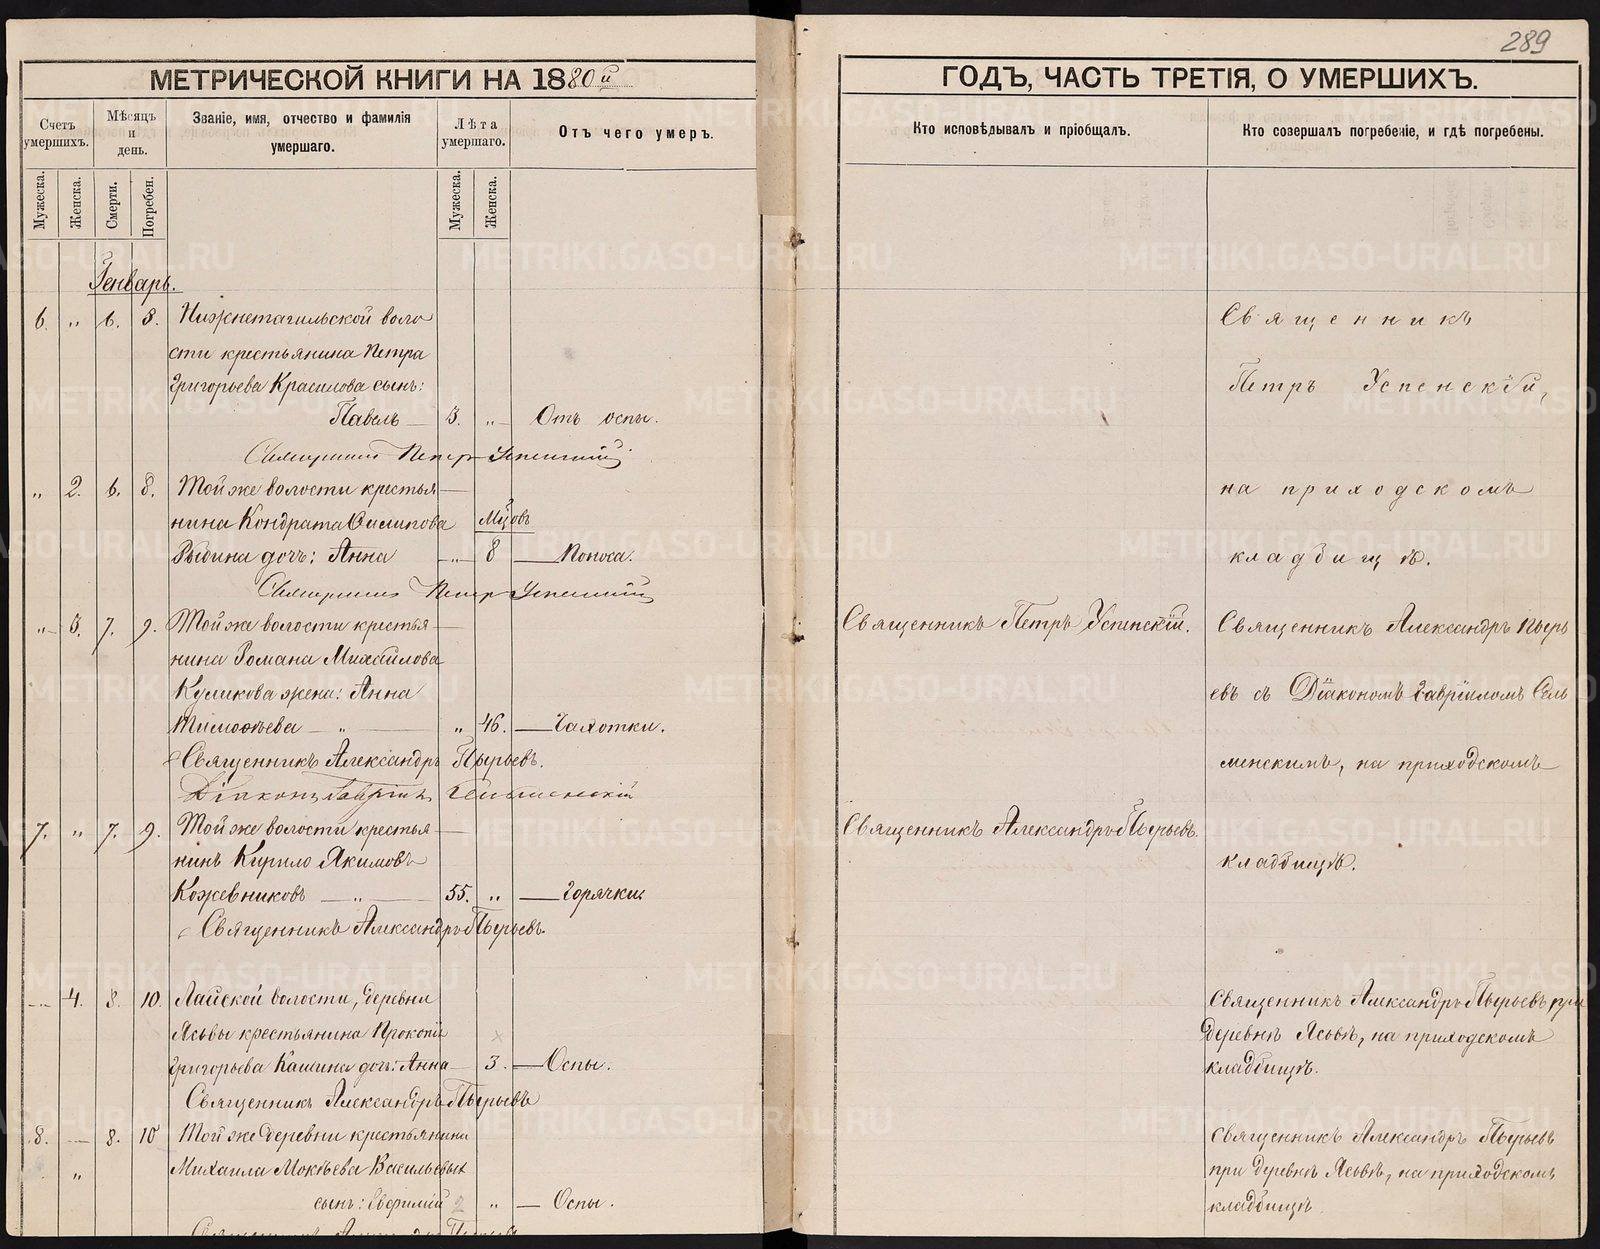 289
МЕТРИЧЕСКОЙ КНИГИ НА 1880й
ГОДЪ, ЧАСТЬ ТРЕТІЯ, О УМЕРШИХЪ.
Счетъ умершихъ.
Мѣсяцъ и день.
Званіе, имя, отчество и фамилія умершаго.
Лѣта умершаго.
Отъ чего умеръ.
Кто исповѣдывалъ и пріобщалъ.
Кто совершалъ погребеніе, и гдѣ погребены.
Мужеска.
Женска.
Смерти.
Погребен.
Мужеска.
Женска.
Генварь.
6. „ 6. 8. Нижнетагильской воло
сти крестьянина Петра
Григорьева Красилова сынъ:
Павелъ 3. „ Отъ оспы.
Священникъ Петръ Успенскій.
Священникъ
Петръ Успенскій,
„ 2. 6. 8. Той же волости крестья
нина Кондрата Филипова Мцовъ
Рыбина дочь: Анна „ 8 Поноса.
Священникъ Петръ Успенскій
на приходскомъ
кладбищѣ.
„ 3. 7. 9. Той же волости крестья
нина Романа Михайлова
Куликова жена: Анна
Тимоѳеева „ „ 46. Чахотки.
Священникъ Александръ Пырьевъ.
Діаконъ Гавріилъ Сельменскій
Священникъ Петръ Успенскій.
Священникъ Александръ Пырь
евъ съ Діакономъ Гавріиломъ Сель
менскимъ, на приходскомъ
кладбищѣ.
7. „ 7. 9. Той же волости крестья
нинъ Кирило Якимовъ
Кожевниковъ „ 55. „ Горячки.
Священникъ Александръ Пырьевъ.
Священникъ Александръ Пырьевъ.
4. 8. 10. Лайской волости, деревни
Ясьвы крестьянина Прокопія
Григорьева Кашина дочь: Анна 3. Оспы.
Священникъ Александръ Пырьевъ
Священникъ Александръ Пырьевъ при
деревнѣ Ясьвѣ, на приходскомъ
кладбищѣ.
8. 8. 10 Той же деревни крестьянина
„ Михаила Мокѣева Васильевых
сынъ: Евфимій 2 „ Оспы.
Священникъ Александръ Пырьевъ
Священникъ Александръ Пырьевъ
при деревнѣ Ясьвѣ, на приходскомъ
кладбищѣ.
METRIKI.GASO-URAL.RU